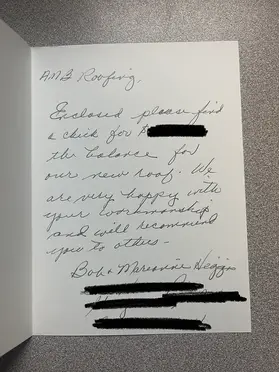 AMG Roofing,
Enclosed please find
a check for $
the balance for
our new roof. We
are very happy with
your workmanship
and will recommend
you to others-
Bob & Marianne